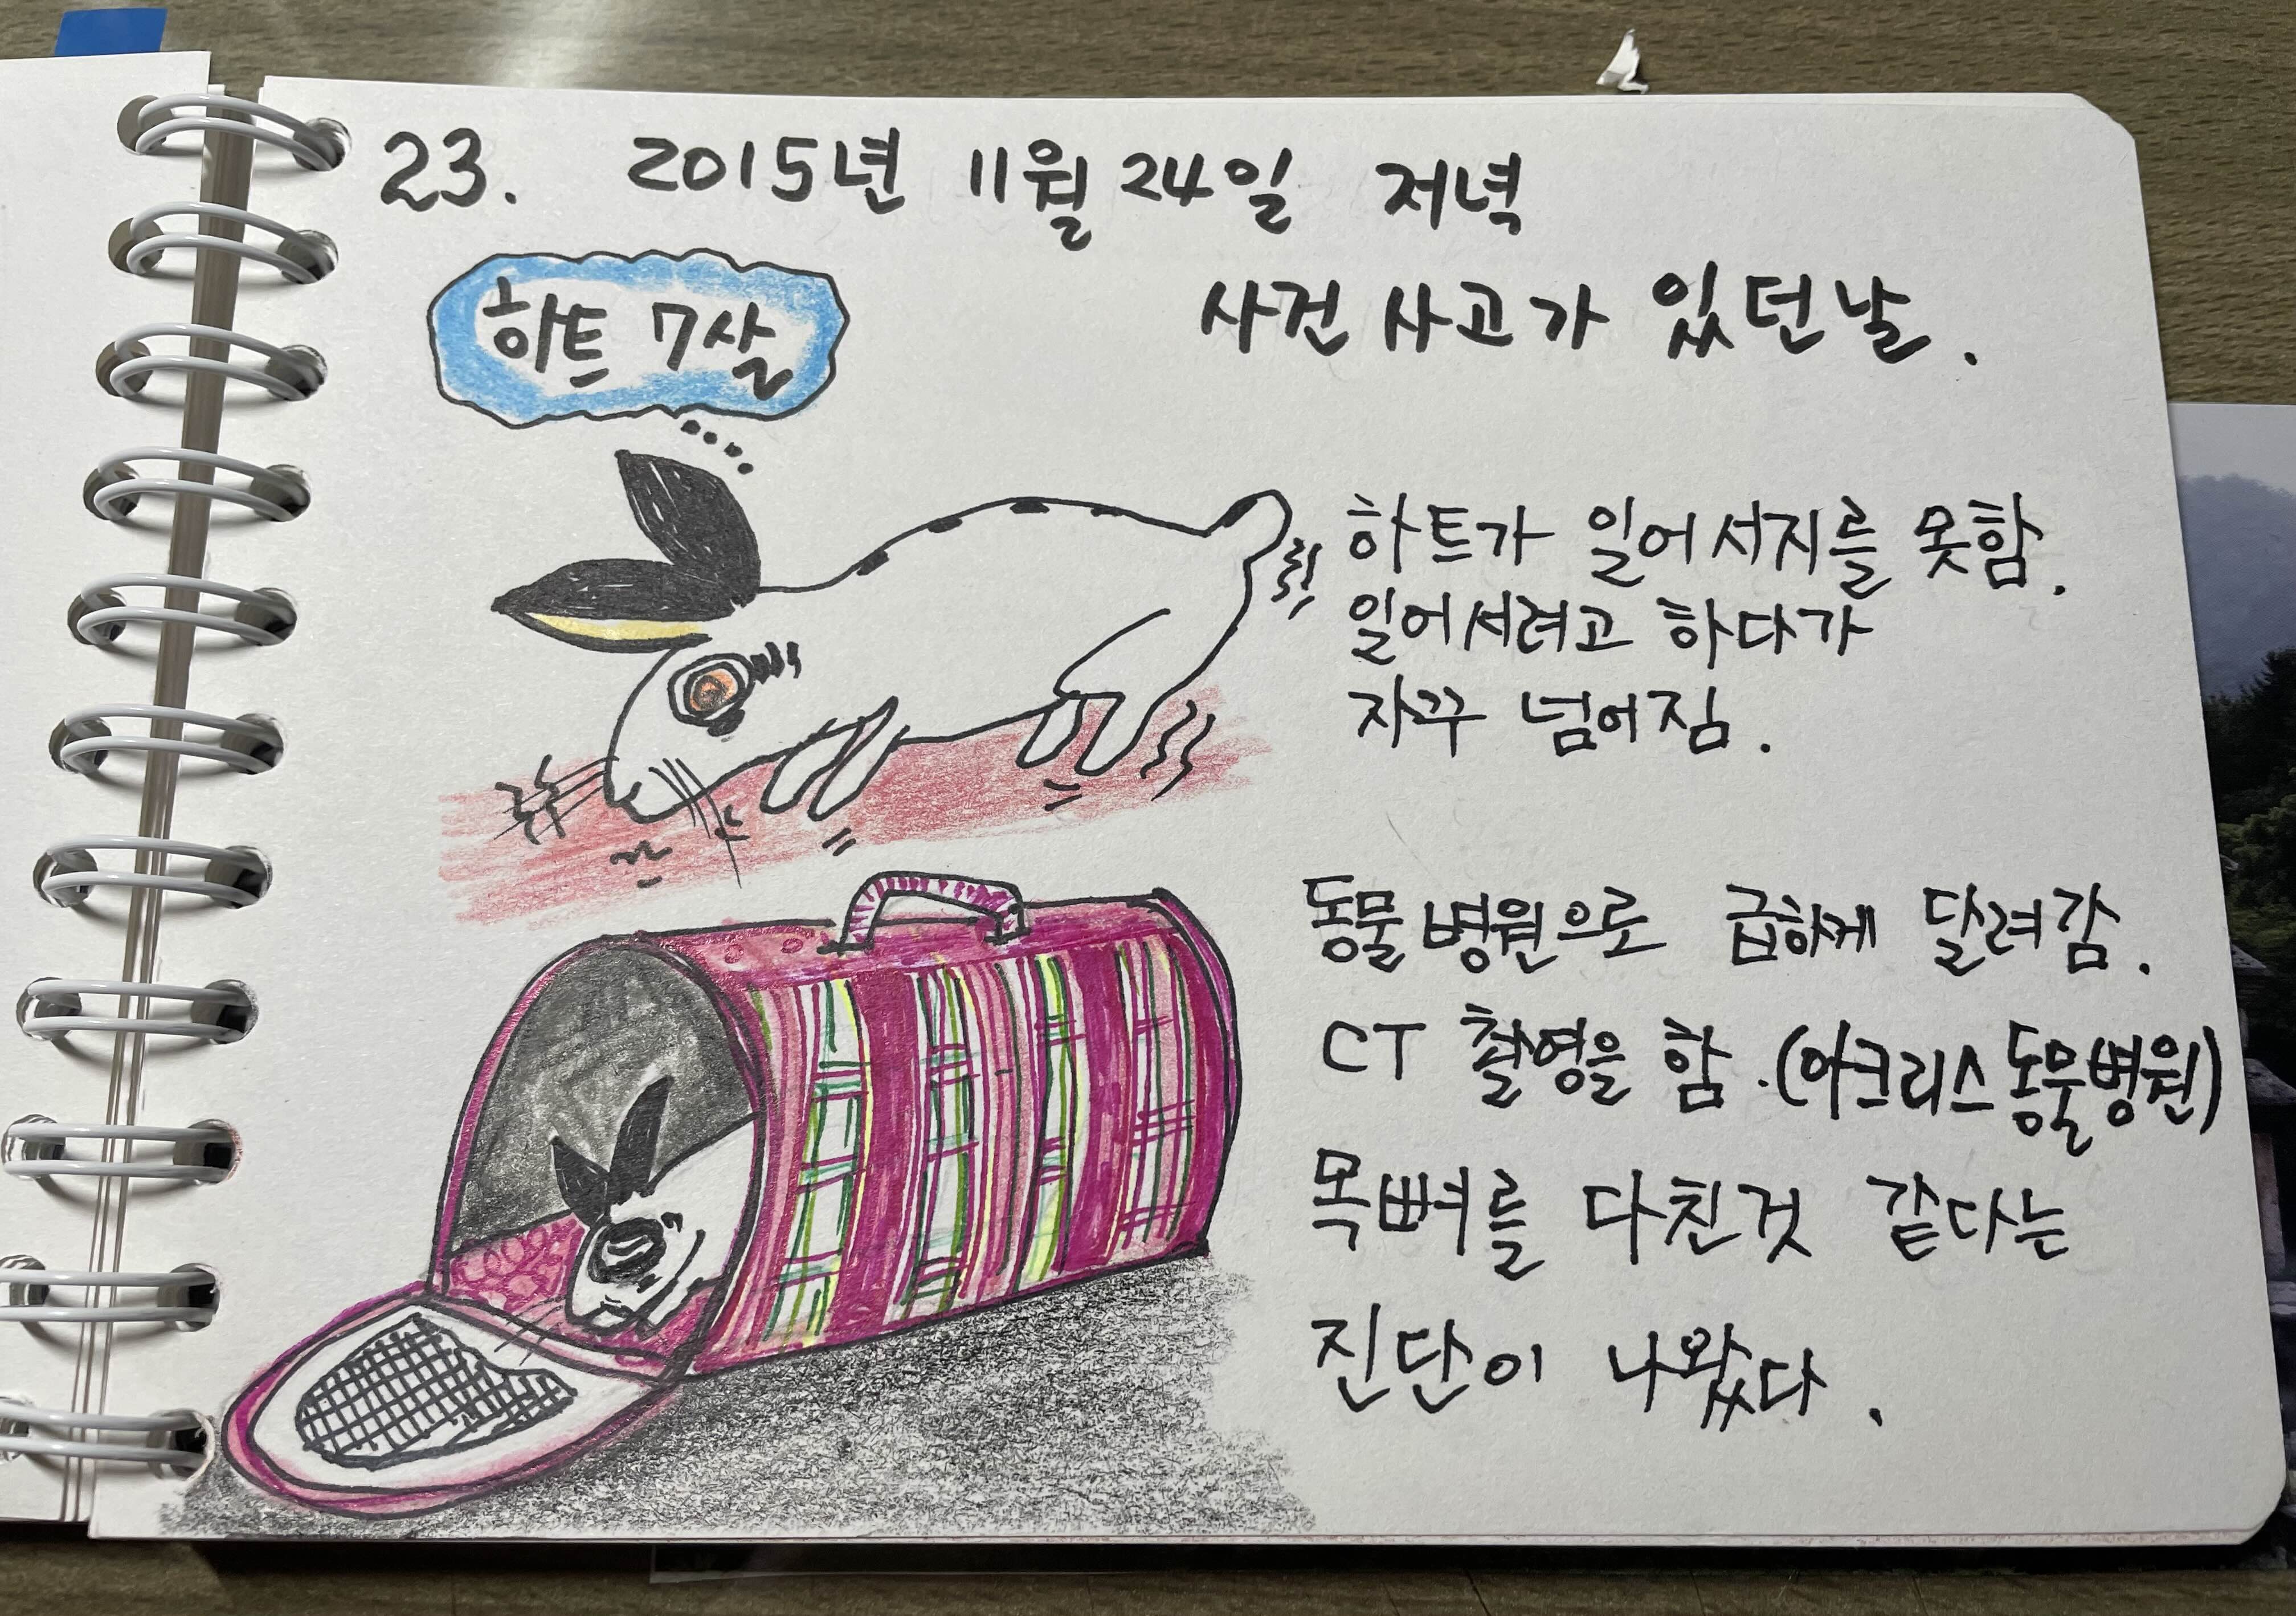 23. 2015년 11월 24일 저녁
사건사고가 있던날.
하트 7살
하트가 일어서지를 못함.
일어서려고 하다가
자꾸 넘어짐.
동물병원으로 급하게 달려감.
CT 촬영을 함.(아크리스동물병원)
목뼈를 다친것 같다는
진단이 나왔다.